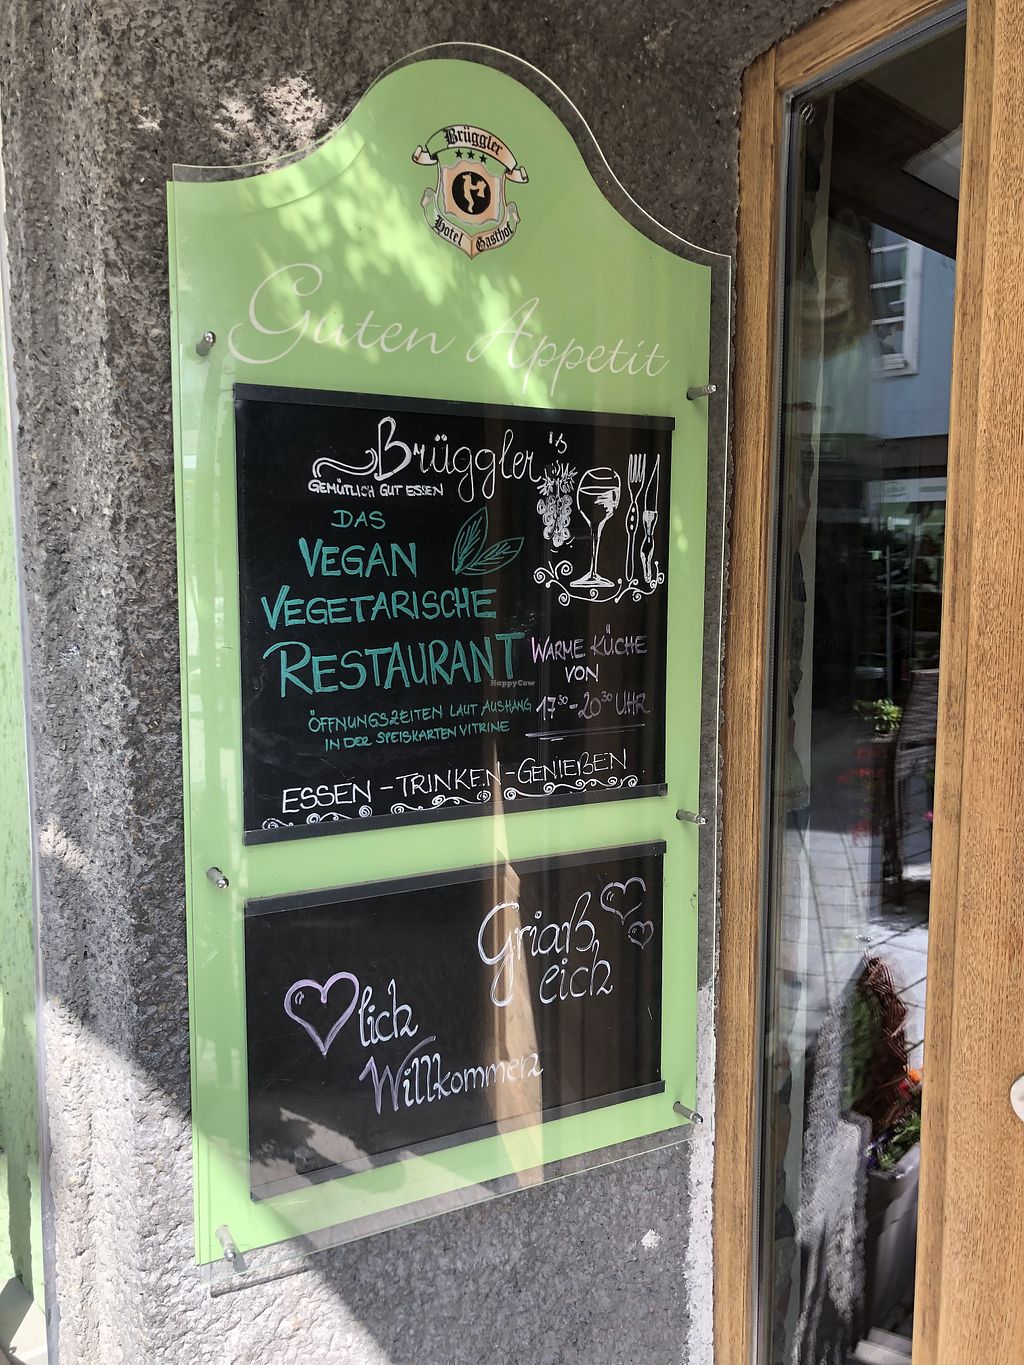 Brüggler
Hotel Gasthof
Guten Appetit
Brüggler's
GEMÜTLICH GUT ESSEN
DAS
VEGAN
VEGETARISCHE
RESTAURANT
ÖFFNUNGSZEITEN LAUT AUSHANG
IN DER SPEISKARTEN VITRINE
WARME KÜCHE
VON
17³⁰-20³⁰ UHR
HappyCow
ESSEN - TRINKEN - GENIEßEN
Griaß
eich
lich
Willkommen